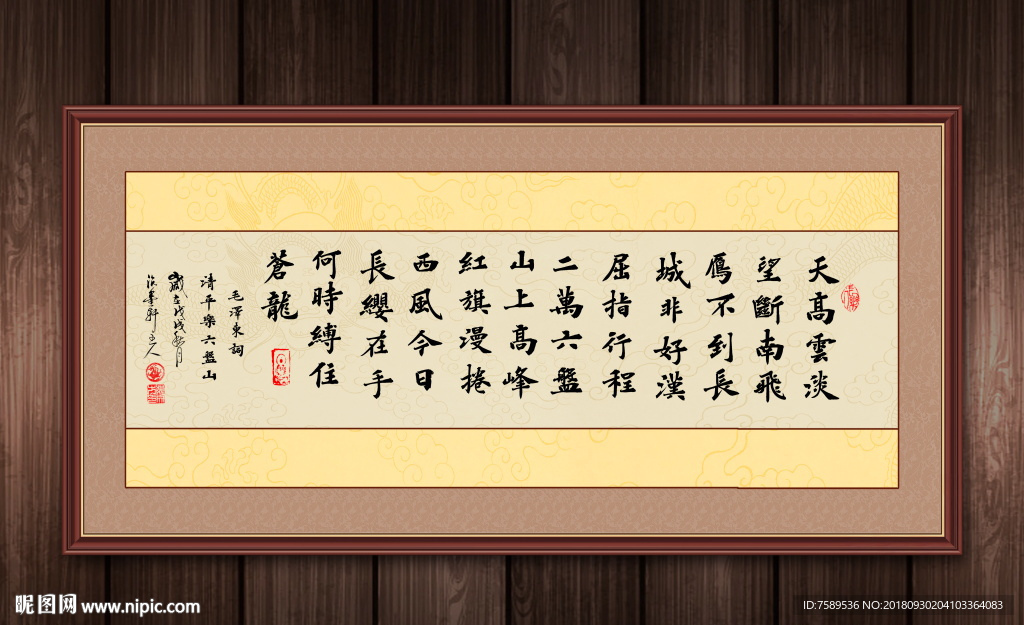 天高雲淡
望斷南飛
雁不到長
城非好漢
屈指行程
二萬六盤
山上高峰
紅旗漫捲
西風今日
長纓在手
何時縛住
蒼龍
毛澤東詞
清平樂六盤山
歲在戊戌秋月
墨軒主人
昵图网 www.nipic.com
ID:7589536 NO:20180930204103364083